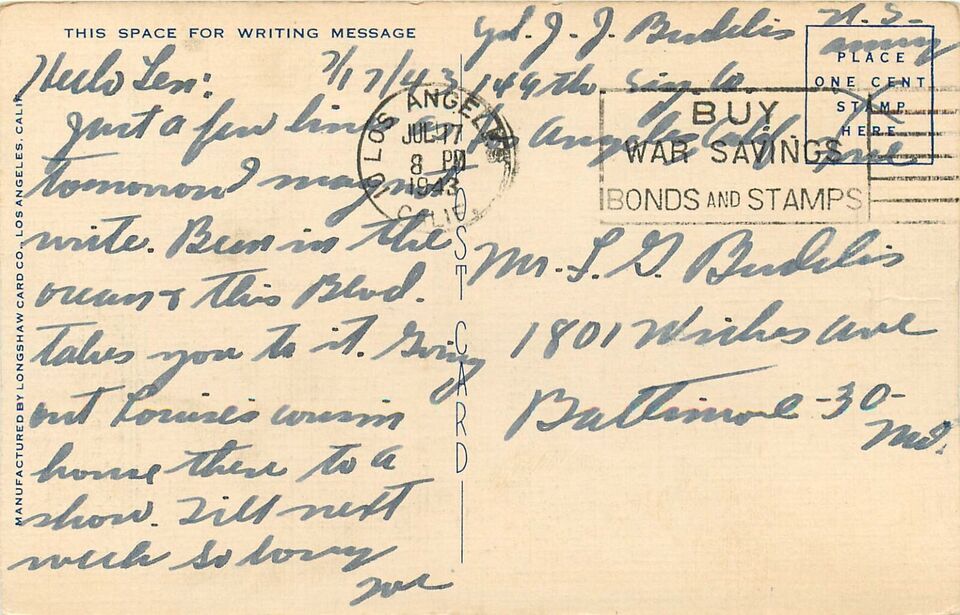 THIS SPACE FOR WRITING MESSAGE
Hello Len: 7/17/43
Just a few lines as
tomorrow I may not
write. Been in the
ocean & this Blvd.
takes you to it. Going
out Louise's cousin
home then to a
show. Till next
week so long
Joe
MANUFACTURED BY LONGSHAW CARD CO., LOS ANGELES, CALIF.
POST CARD
LOS ANGELES
JUL 17
8 PM
1943
CALIF.
J. J. Budelis U.S.
Army
149th Sig. Co.
Los Angeles Calif
Free
PLACE
ONE CENT
STAMP
HERE
BUY
WAR SAVINGS
BONDS AND STAMPS
Mr. L. G. Budelis
1801 Wilkes Ave
Baltimore -30-
Md.